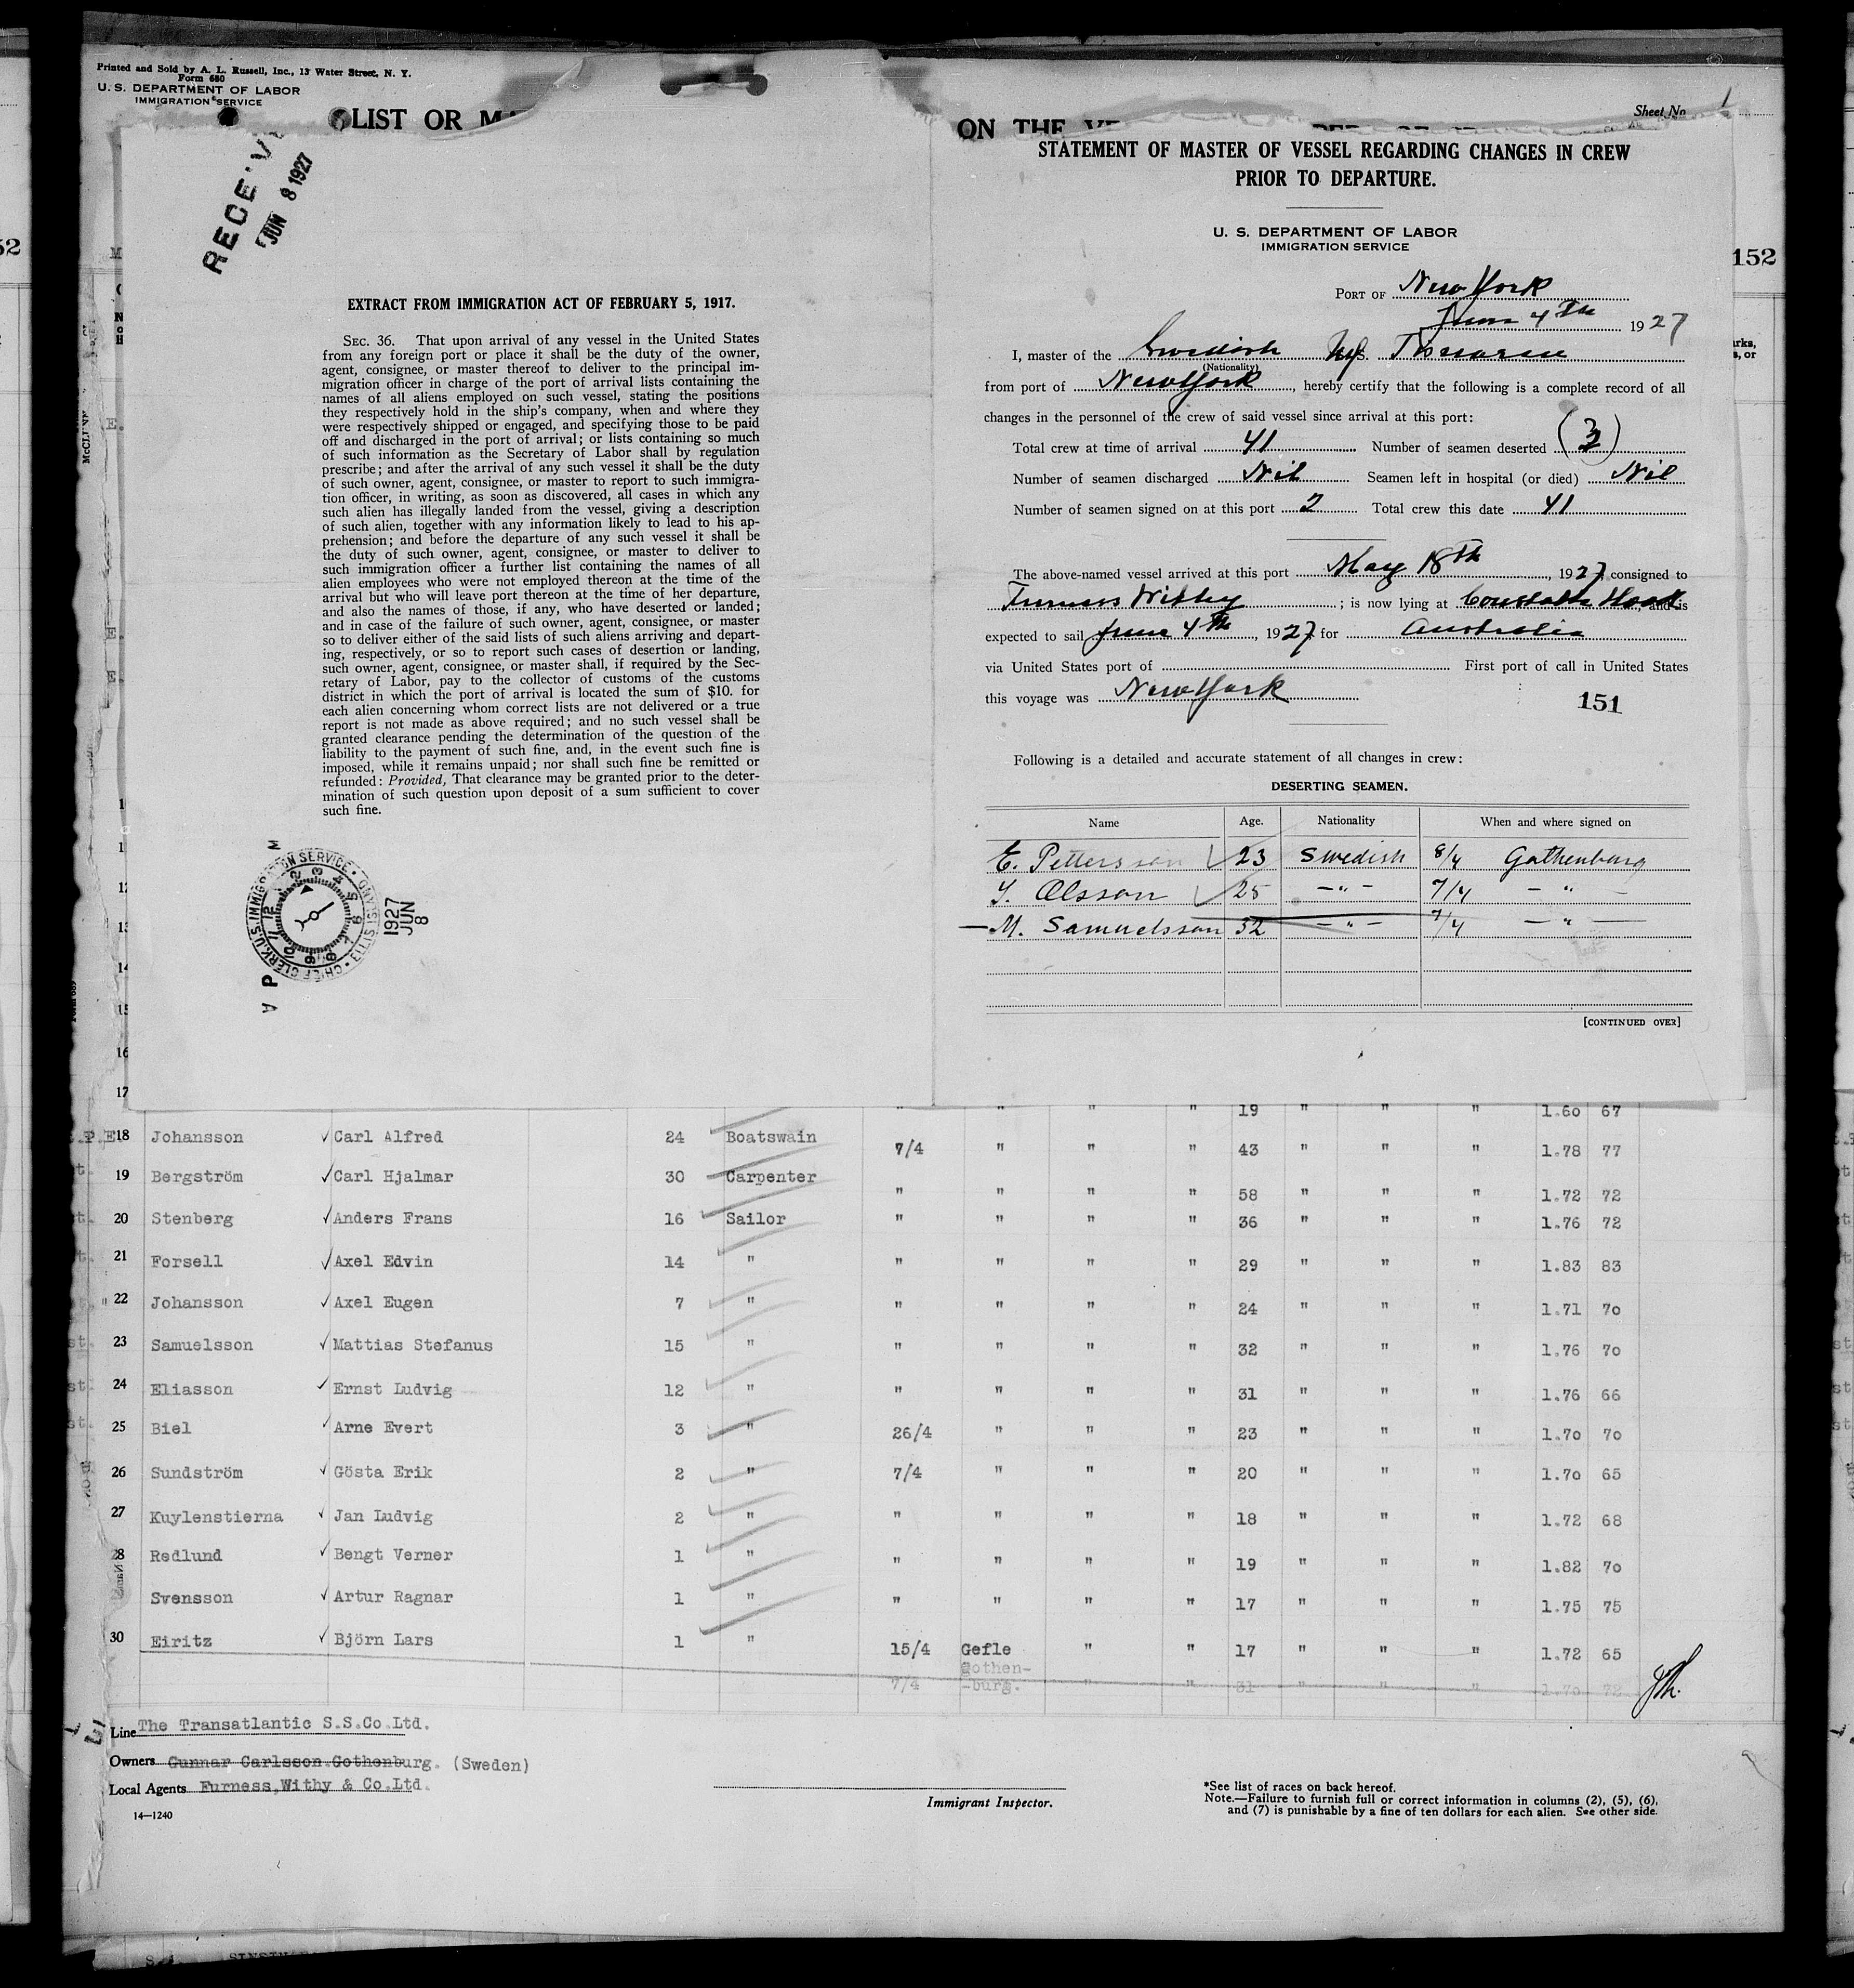 Printed and Sold by A. L. Russell, Inc., 13 Water Street, N. Y.
Form 680
U. S. DEPARTMENT OF LABOR
IMMIGRATION SERVICE
LIST OR
ON THE
Sheet No. 1
RECEIVE
JUN 8 1927
EXTRACT FROM IMMIGRATION ACT OF FEBRUARY 5, 1917.
SEC. 36. That upon arrival of any vessel in the United States
from any foreign port or place it shall be the duty of the owner,
agent, consignee, or master thereof to deliver to the principal im-
migration officer in charge of the port of arrival lists containing the
names of all aliens employed on such vessel, stating the positions
they respectively hold in the ship's company, when and where they
were respectively shipped or engaged, and specifying those to be paid
off and discharged in the port of arrival; or lists containing so much
of such information as the Secretary of Labor shall by regulation
prescribe; and after the arrival of any such vessel it shall be the duty
of such owner, agent, consignee, or master to report to such immigra-
tion officer, in writing, as soon as discovered, all cases in which any
such alien has illegally landed from the vessel, giving a description
of such alien, together with any information likely to lead to his ap-
prehension; and before the departure of any such vessel it shall be
the duty of such owner, agent, consignee, or master to deliver to
such immigration officer a further list containing the names of all
alien employees who were not employed thereon at the time of the
arrival but who will leave port thereon at the time of her departure,
and also the names of those, if any, who have deserted or landed;
and in case of the failure of such owner, agent, consignee, or master
so to deliver either of the said lists of such aliens arriving and depart-
ing, respectively, or so to report such cases of desertion or landing,
such owner, agent, consignee, or master shall, if required by the Sec-
retary of Labor, pay to the collector of customs of the customs
district in which the port of arrival is located the sum of $10. for
each alien concerning whom correct lists are not delivered or a true
report is not made as above required; and no such vessel shall be
granted clearance pending the determination of the question of the
liability to the payment of such fine, and, in the event such fine is
imposed, while it remains unpaid; nor shall such fine be remitted or
refunded: Provided, That clearance may be granted prior to the deter-
mination of such question upon deposit of a sum sufficient to cover
such fine.
CHIEF CLERK. U.S. IMMIGRATION SERVICE • ELLIS ISLAND
1927
JUN
8
STATEMENT OF MASTER OF VESSEL REGARDING CHANGES IN CREW
PRIOR TO DEPARTURE.
U. S. DEPARTMENT OF LABOR
IMMIGRATION SERVICE
PORT OF New York
June 4th 1927
152
I, master of the Swedish M/S. Tisnaren
(Nationality)
from port of New York, hereby certify that the following is a complete record of all
changes in the personnel of the crew of said vessel since arrival at this port:
Total crew at time of arrival 41 Number of seamen deserted (3)
Number of seamen discharged Nil Seamen left in hospital (or died) Nil
Number of seamen signed on at this port 2 Total crew this date 41
The above-named vessel arrived at this port May 18th, 1927, consigned to
Furness Withy; is now lying at Constable Hook, and is
expected to sail June 4th, 1927, for Australia
via United States port of First port of call in United States
this voyage was New York
151
Following is a detailed and accurate statement of all changes in crew:
DESERTING SEAMEN.
Name Age. Nationality When and where signed on
E. Pettersson 23 Swedish 8/4 Gothenburg
Y. Olsson 25 -"- 7/4 - " -
M. Samuelsson 32 -"- 7/4 - " -
[CONTINUED OVER]
" " " " 19 " " " 1.60 67
18 Johansson Carl Alfred 24 Boatswain 7/4 " " " 43 " " " 1.78 77
19 Bergström Carl Hjalmar 30 Carpenter " " " " 58 " " " 1.72 72
20 Stenberg Anders Frans 16 Sailor " " " " 36 " " " 1.76 72
21 Forsell Axel Edvin 14 " " " " " 29 " " " 1.83 83
22 Johansson Axel Eugen 7 " " " " " 24 " " " 1.71 70
23 Samuelsson Mattias Stefanus 15 " " " " " 32 " " " 1.76 70
24 Eliasson Ernst Ludvig 12 " " " " " 31 " " " 1.76 66
25 Biel Arne Evert 3 " 26/4 " " " 23 " " " 1.70 70
26 Sundström Gösta Erik 2 " 7/4 " " " 20 " " " 1.70 65
27 Kuylenstierna Jan Ludvig 2 " " " " " 18 " " " 1.72 68
28 Redlund Bengt Verner 1 " " " " " 19 " " " 1.82 70
Svensson Artur Ragnar 1 " " " " " 17 " " " 1.75 75
30 Eiritz Björn Lars 1 " 15/4 Gefle " " 17 " " " 1.72 65
7/4 Gothen-
-burg. " " 31 " " " 1.70 72
Line The Transatlantic S.S.Co.Ltd.
Owners Gunnar Carlsson.Gothenburg. (Sweden)
Local Agents Furness,Withy & Co.Ltd.
14—1240
Immigrant Inspector.
*See list of races on back hereof.
Note.—Failure to furnish full or correct information in columns (2), (5), (6),
and (7) is punishable by a fine of ten dollars for each alien. See other side.